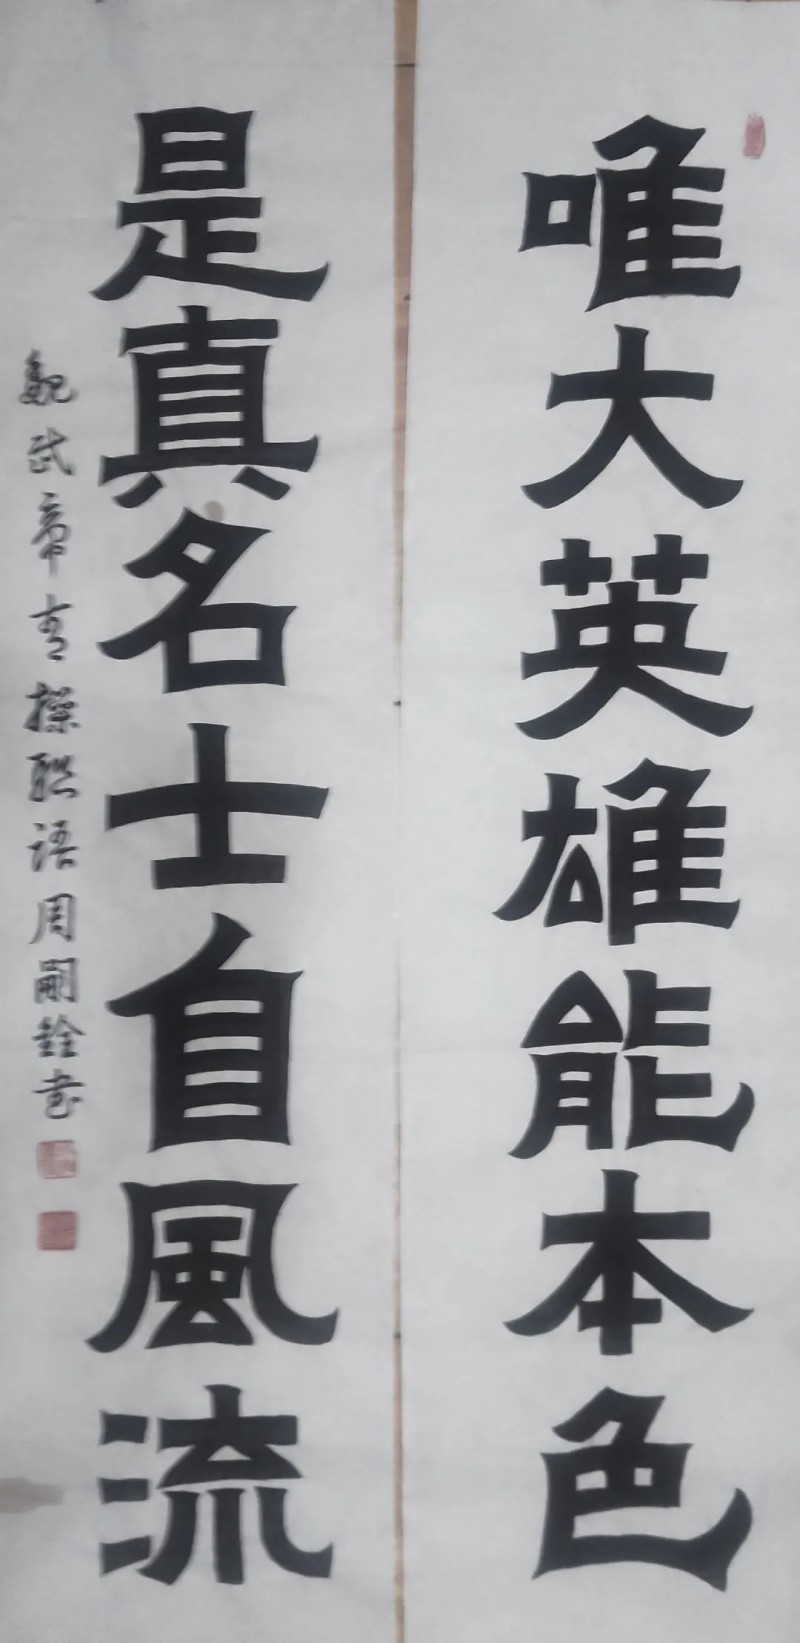 唯大英雄能本色
是真名士自風流
魏武帝曹操联语周嗣銓书